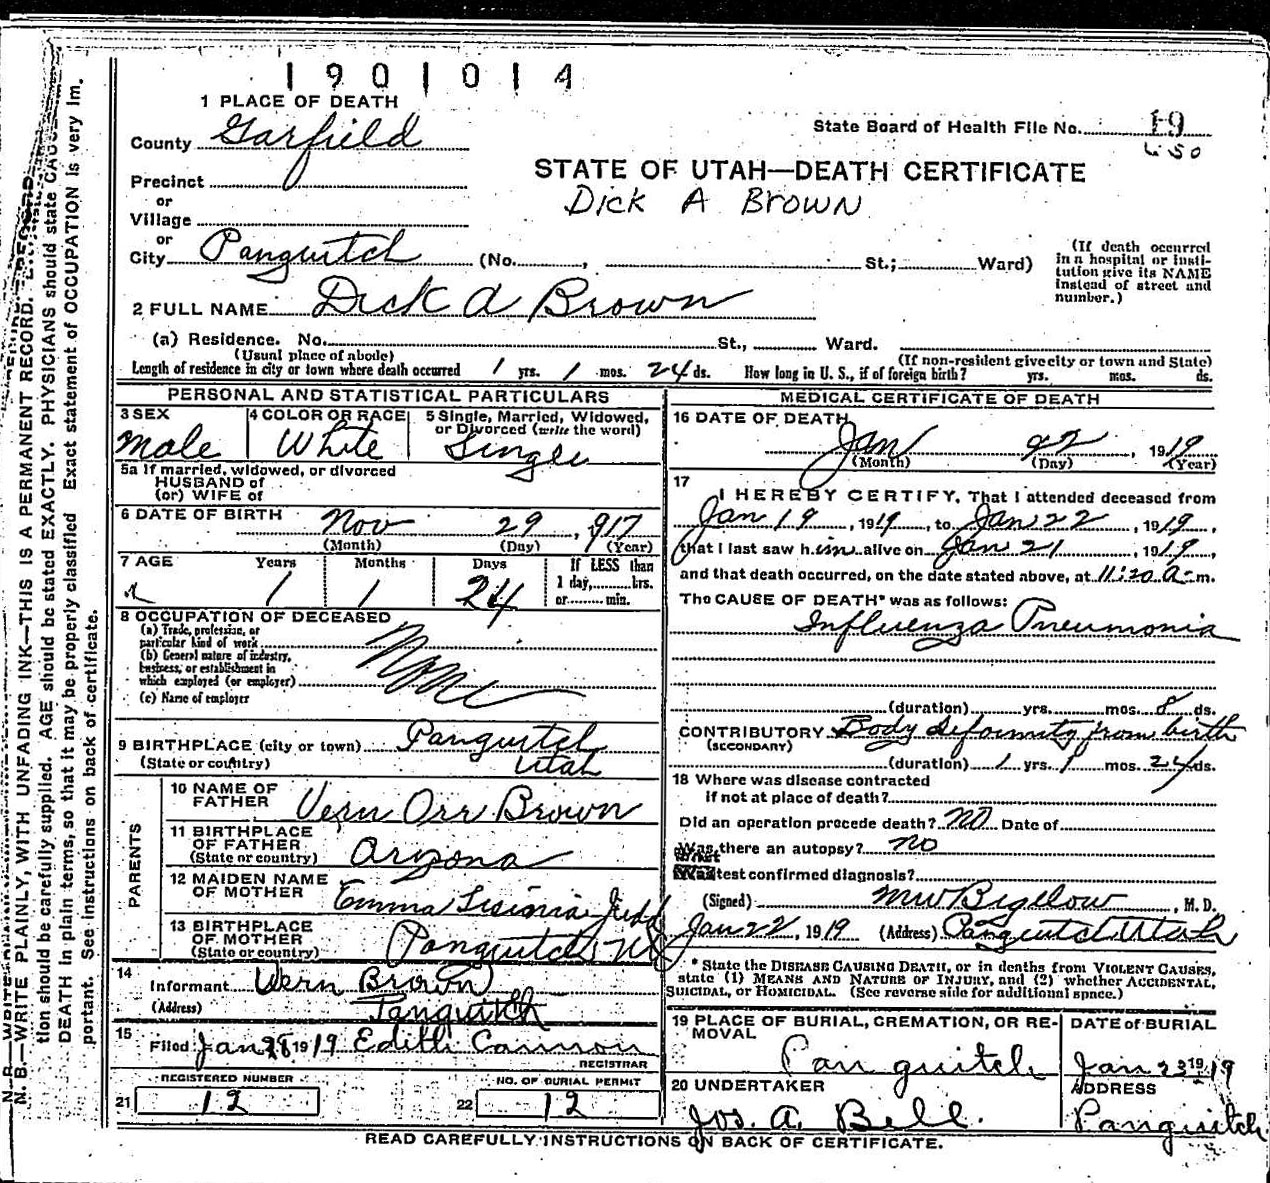 1901014
1 PLACE OF DEATH
County Garfield
State Board of Health File No. 19
Precinct
STATE OF UTAH—DEATH CERTIFICATE
or
Dick A Brown
Village
or
City Panguitch (No. , St.; Ward)
(If death occurred in a hospital or institution give its NAME instead of street and number.)
2 FULL NAME Dick A Brown
(a) Residence. No. St., Ward.
(Usual place of abode) (If non-resident give city or town and State)
Length of residence in city or town where death occurred 1 yrs. 1 mos. 24 ds. How long in U. S., if of foreign birth? yrs. mos. ds.
PERSONAL AND STATISTICAL PARTICULARS
3 SEX 4 COLOR OR RACE 5 Single, Married, Widowed,
or Divorced (write the word)
Male White Single
5a If married, widowed, or divorced
HUSBAND of
(or) WIFE of
6 DATE OF BIRTH Nov 29, 917
(Month) (Day) (Year)
7 AGE Years Months Days If LESS than
1 day, hrs.
or min.
1 1 24
8 OCCUPATION OF DECEASED
(a) Trade, profession, or
particular kind of work
(b) General nature of industry,
business, or establishment in
which employed (or employer)
(c) Name of employer
None
9 BIRTHPLACE (city or town) Panguitch
(State or country) Utah
PARENTS
10 NAME OF
FATHER Vern Orr Brown
11 BIRTHPLACE
OF FATHER
(State or country) Arizona
12 MAIDEN NAME
OF MOTHER Emma Judd
13 BIRTHPLACE
OF MOTHER
(State or country) Panguitch
14
Informant Vern Brown
(Address) Panguitch
15
Filed Jan 28 1919 Edith Cannon
REGISTRAR
REGISTERED NUMBER NO. OF BURIAL PERMIT
21 12 22 12
MEDICAL CERTIFICATE OF DEATH
16 DATE OF DEATH
Jan 22, 1919
(Month) (Day) (Year)
17
I HEREBY CERTIFY, That I attended deceased from
Jan 19, 1919, to Jan 22, 1919,
that I last saw him alive on Jan 21, 1919,
and that death occurred, on the date stated above, at 11:20 a.m.
The CAUSE OF DEATH* was as follows:
Influenza Pneumonia
(duration) yrs. mos. 8 ds.
CONTRIBUTORY Body deformity from birth
(SECONDARY)
(duration) 1 yrs. 1 mos. 24 ds.
18 Where was disease contracted
if not at place of death?
Did an operation precede death? No Date of
Was there an autopsy? No
What test confirmed diagnosis?
(Signed) MW Bigelow, M. D.
Jan 22, 1919 (Address) Panguitch Utah
* State the DISEASE CAUSING DEATH, or in deaths from VIOLENT CAUSES,
state (1) MEANS AND NATURE OF INJURY, and (2) whether ACCIDENTAL,
SUICIDAL, or HOMICIDAL. (See reverse side for additional space.)
19 PLACE OF BURIAL, CREMATION, OR RE- DATE of BURIAL
MOVAL
Panguitch Jan 23 1919
20 UNDERTAKER ADDRESS
Jos. A. Bell. Panguitch
READ CAREFULLY INSTRUCTIONS ON BACK OF CERTIFICATE.
N. B.—WRITE PLAINLY, WITH UNFADING INK—THIS IS A PERMANENT RECORD.
tion should be carefully supplied. AGE should be stated EXACTLY. PHYSICIANS should state CAUSE
DEATH in plain terms, so that it may be properly classified Exact statement of OCCUPATION is very im.
portant. See instructions on back of certificate.